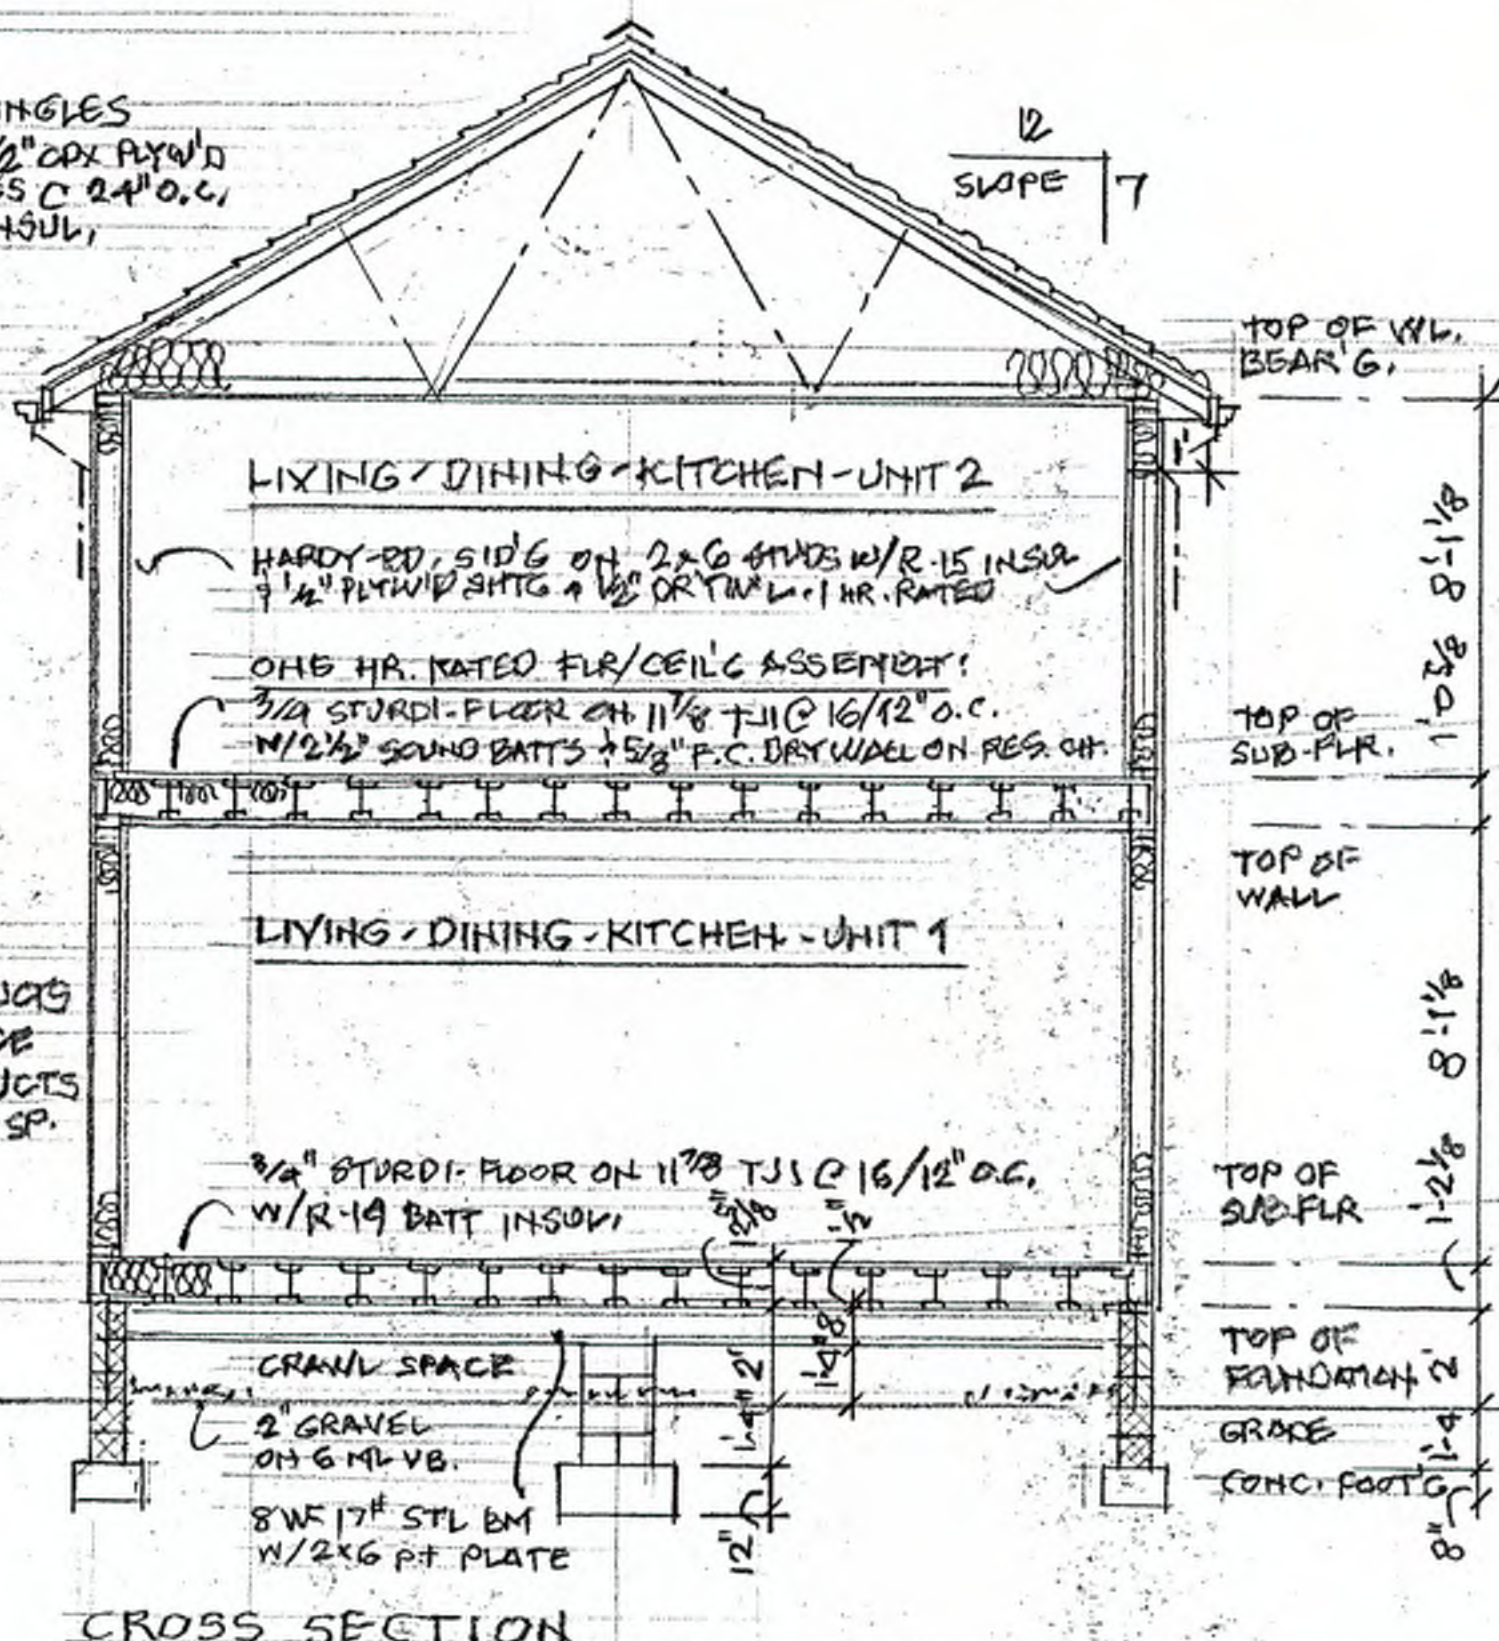 INGLES
1/2" CDX PLYW'D
SS @ 24" O.C.
NSUL,
12
SLOPE 7
TOP OF WL.
BEAR'G.
LIVING-DINING-KITCHEN-UNIT 2
HARDY-BD. SID'G ON 2x6 STUDS W/R-15 INSUL
& 1/2" PLYW'D SHTG & 1/2" 1 HR. RATED
8'-1 1/8
ONE HR. RATED FLR/CEIL'G ASSEMBLY:
3/4 STURDI-FLOOR ON 11 7/8 TJI @ 16/12" O.C.
W/2 1/2" SOUND BATTS & 5/8" F.C. DRYWALL ON RES. CH.
TOP OF
SUB-FLR.
1'-0 5/8
TOP OF
WALL
LIVING-DINING-KITCHEN-UNIT 1
UCTS
CE
UCTS
SP.
8'-1 1/8
3/4" STURDI-FLOOR ON 11 7/8 TJI @ 16/12" O.C.
W/R-19 BATT INSUL,
TOP OF
SUB-FLR
1'-2 1/8
TOP OF
FOUNDATION
2'
CRAWL SPACE
2'
1'-4"
8"
1'-4"
2" GRAVEL
ON 6 ML VB.
GRADE
1'-4
CONC. FOOT'G
8"
8 WF 17# STL BM
W/2x6 P.T PLATE
12"
CROSS SECTION